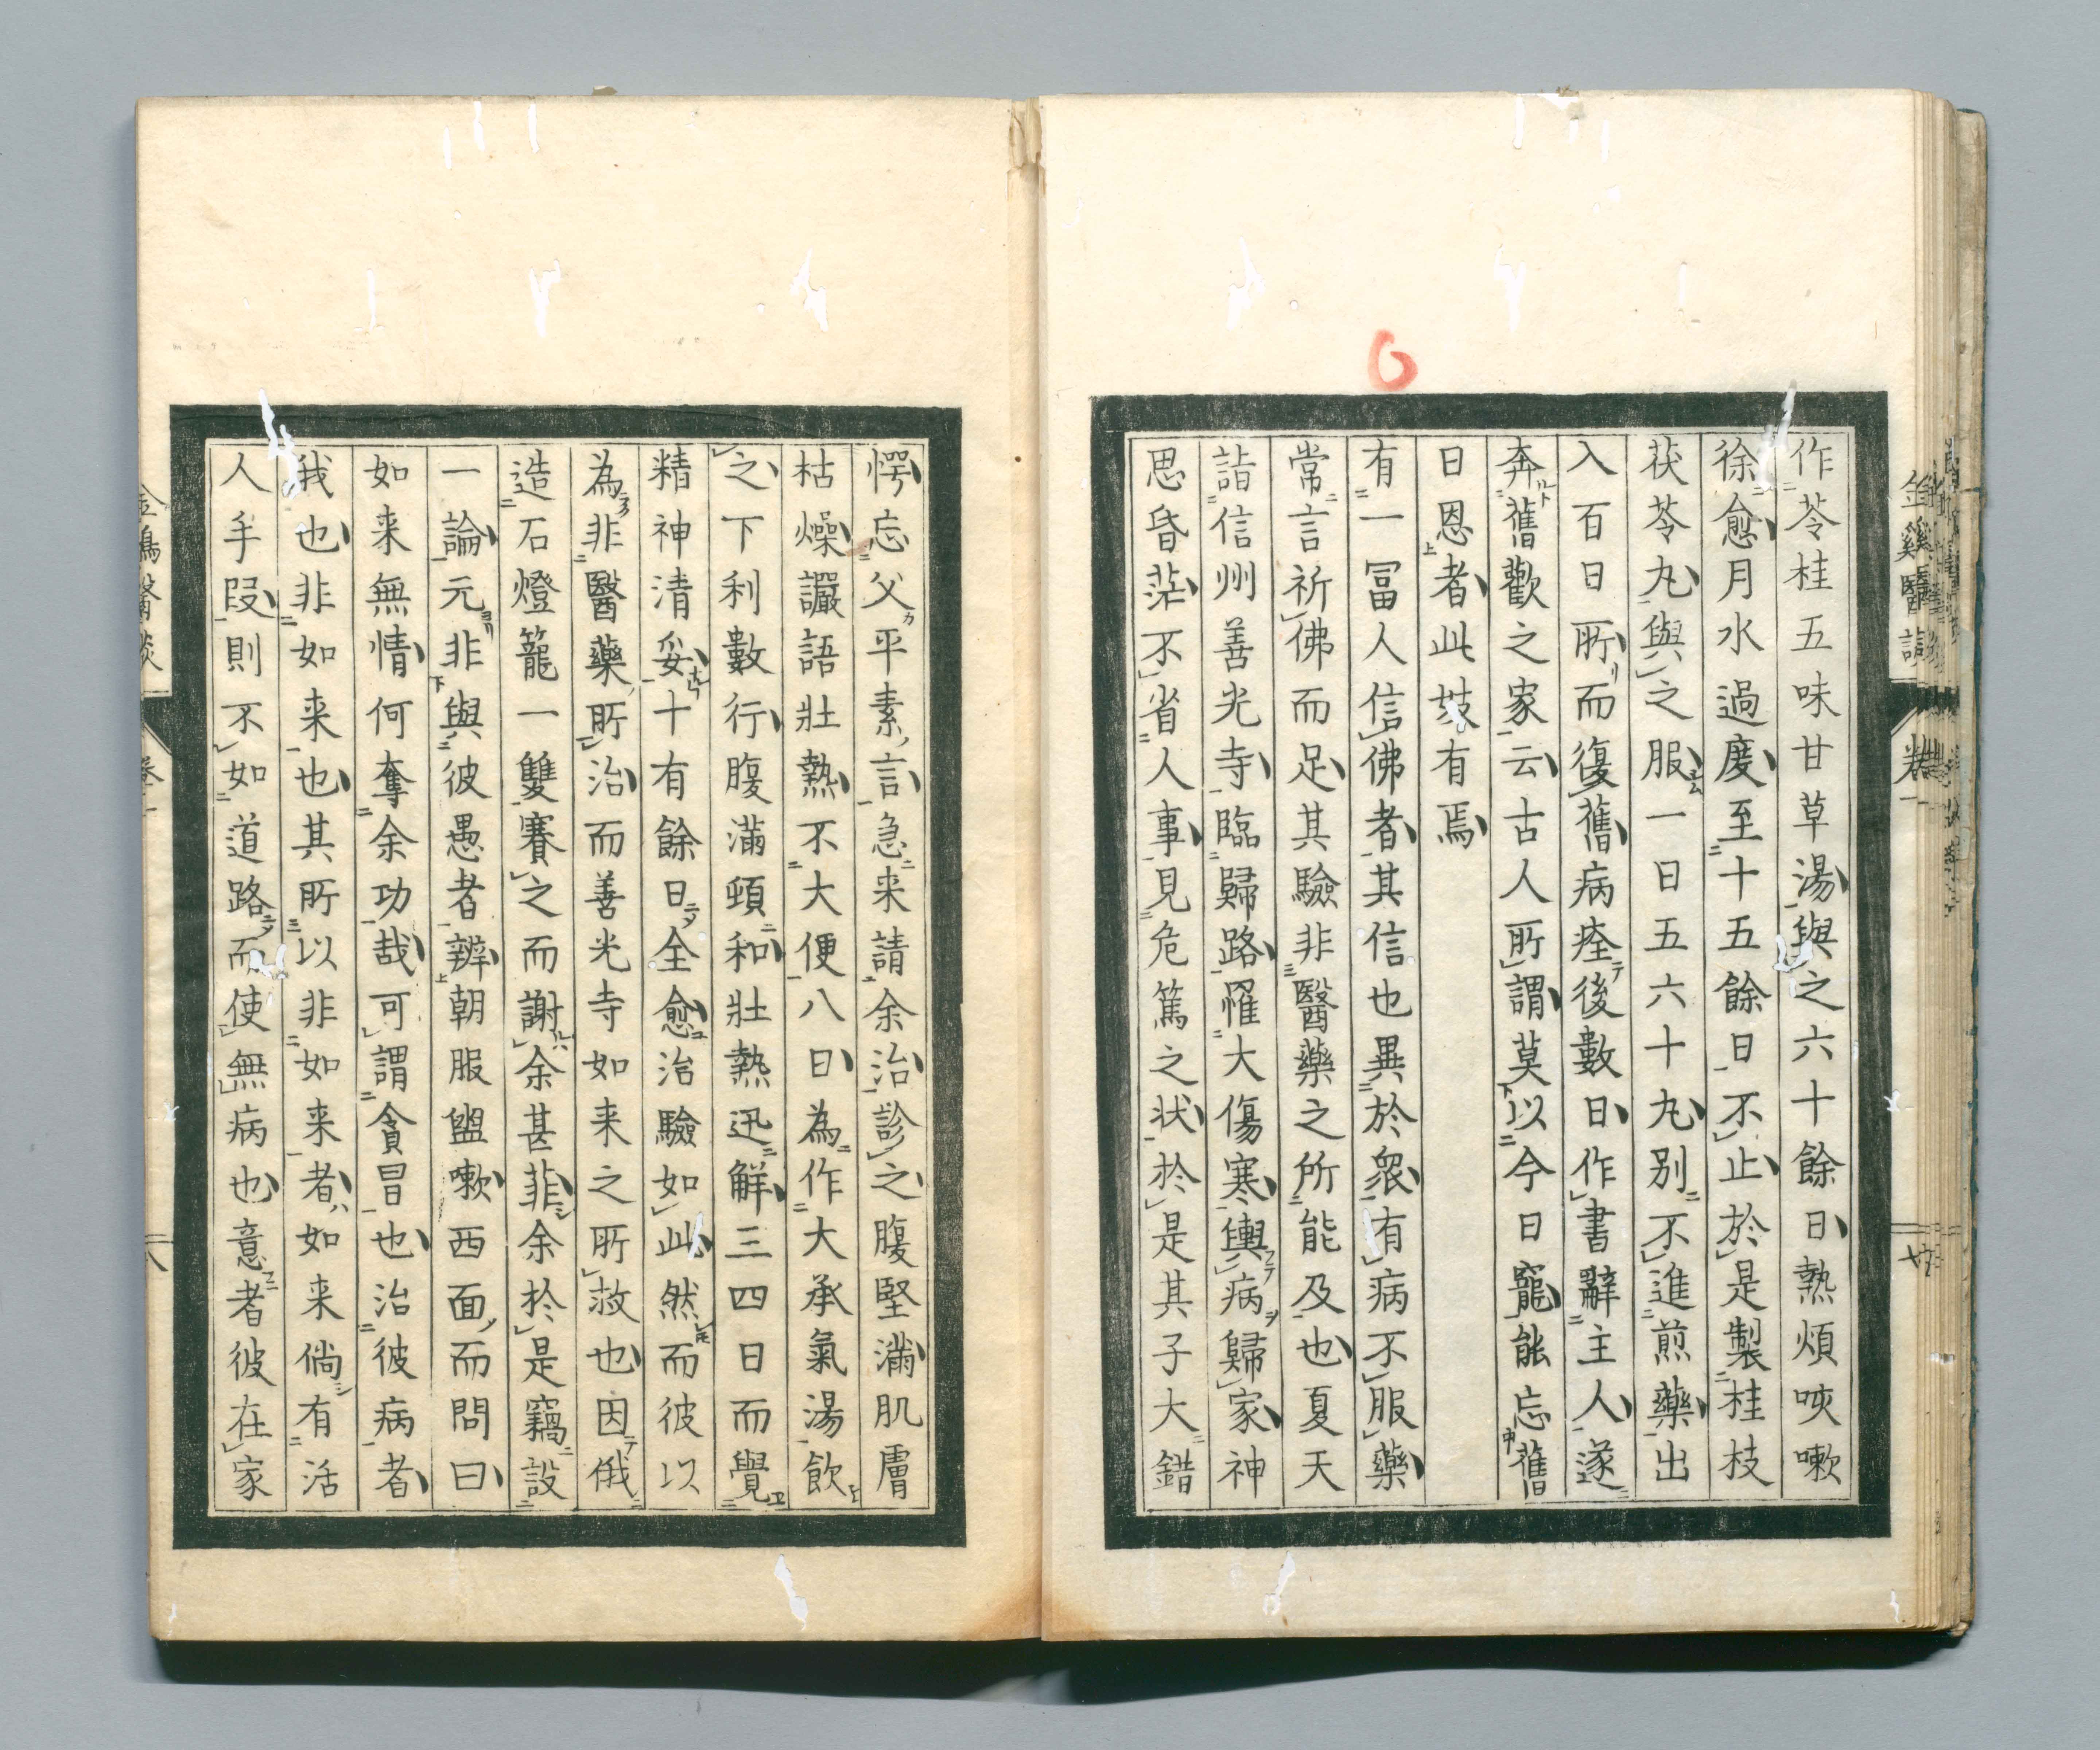 作苓桂五味甘草湯與之六十餘日熱煩咳嗽
徐愈月水過度至十五餘日不止於是製桂枝
茯苓丸與之服一日五六十丸別不進煎藥出
入百日所而復舊病痊後數日作書辭主人遂
奔舊歡之家云古人所謂莫以今日寵能忘舊
日恩者此妓有焉
有一冨人信佛者其信也異於衆有病不服藥
常言祈佛而足其驗非醫藥之所能及也夏天
詣信州善光寺臨歸路罹大傷寒輿病歸家神
思昏茫不省人事見危篤之状於是其子大錯
愕忘父平素言急来請余治診之腹堅滿肌膚
枯燥讝語壯熱不大便八日為作大承氣湯飲
之下利數行腹滿頓和壯熱迅觧三四日而覺
精神清妥十有餘日全愈治驗如此然而彼以
為非醫藥所治而善光寺如来之所救也因俄
造石燈籠一雙賽之而謝余甚菲余於是竊設
一論元非與彼愚者辨朝服盥嗽西面而問曰
如来無情何奪余功哉可謂貪冒也治彼病者
我也非如来也其所以非如来者如来倘有活
人手段則不如道路而使無病也意者彼在家